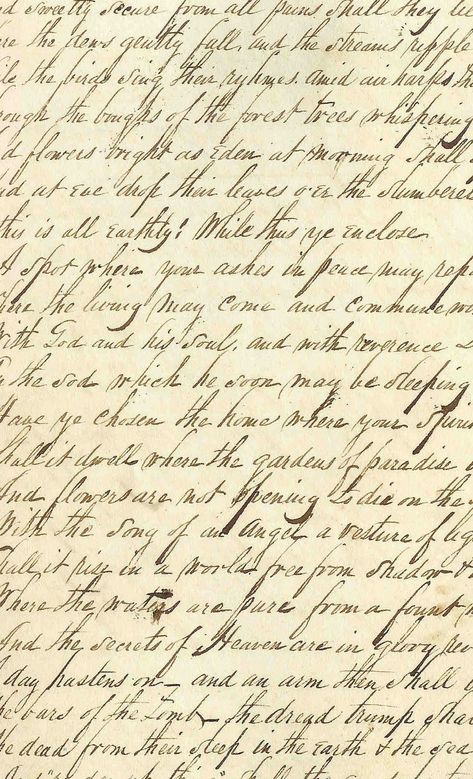 d sweetly secure from all pains shall they
re the dews gently fall, and the streams ripple
ile the birds sing their ryhmes, amid air harps
ough the boughs of the forest trees whispering
d flowers bright as Eden at morning shall
nd at Eve drop their leaves o'er the slumberer
this is all Earthly! While thus ye Enclose
A spot where your ashes in peace may rep
here the living may come and commune wi
With God and his soul, and with reverence
the sod which he soon may be sleeping
Have ye chosen the home where your spiri
Shall it dwell where the gardens of paradise
And flowers are not opening to die on the
With the song of an angel a vesture of lig
Shall it rise in a world free from shadow &
Where the waters are pure from a fount
And the secrets of Heaven are in glory rev
day hastens on— and an arm then shall
he bars of the Tomb— the dread trump shal
he dead from their sleep in the Earth & the sea